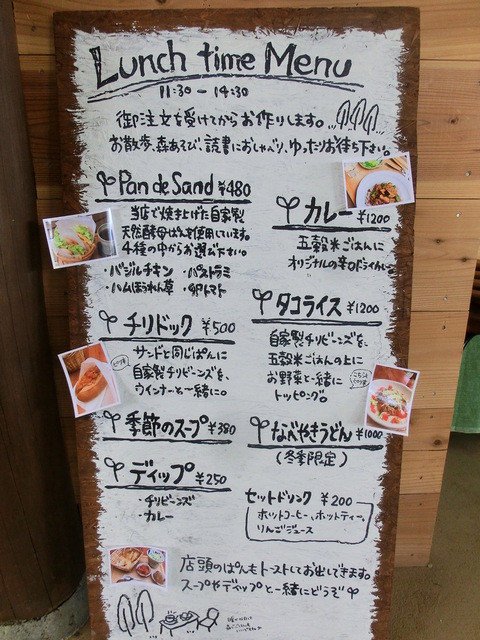 Lunch time Menu
11:30 - 14:30
御注文を受けてからお作りします。
お散歩、森あそび、読書におしゃべり、ゆったりお待ち下さい。
Pan de Sand ¥480
当店で焼き上げた自家製
天然酵母ぱんを使用しています。
4種の中からお選び下さい。
・バジルチキン ・パストラミ
・ハムほうれん草 ・卵トマト
チリドック ¥500
サンドと同じぱんに
自家製チリビーンズを、
ウインナーと一緒に。
季節のスープ ¥380
ディップ ¥250
・チリビーンズ
・カレー
カレー ¥1200
五穀米ごはんに
オリジナルの辛口ドライカレー
タコライス ¥1200
自家製チリビーンズを、
五穀米ごはんの上に
お野菜と一緒に
トッピング。
なべやきうどん ¥1000
(冬季限定)
セットドリンク ¥200
ホットコーヒー、ホットティー、
りんごジュース
店頭のぱんもトーストしてお出しできます。
スープやディップと一緒にどうぞ